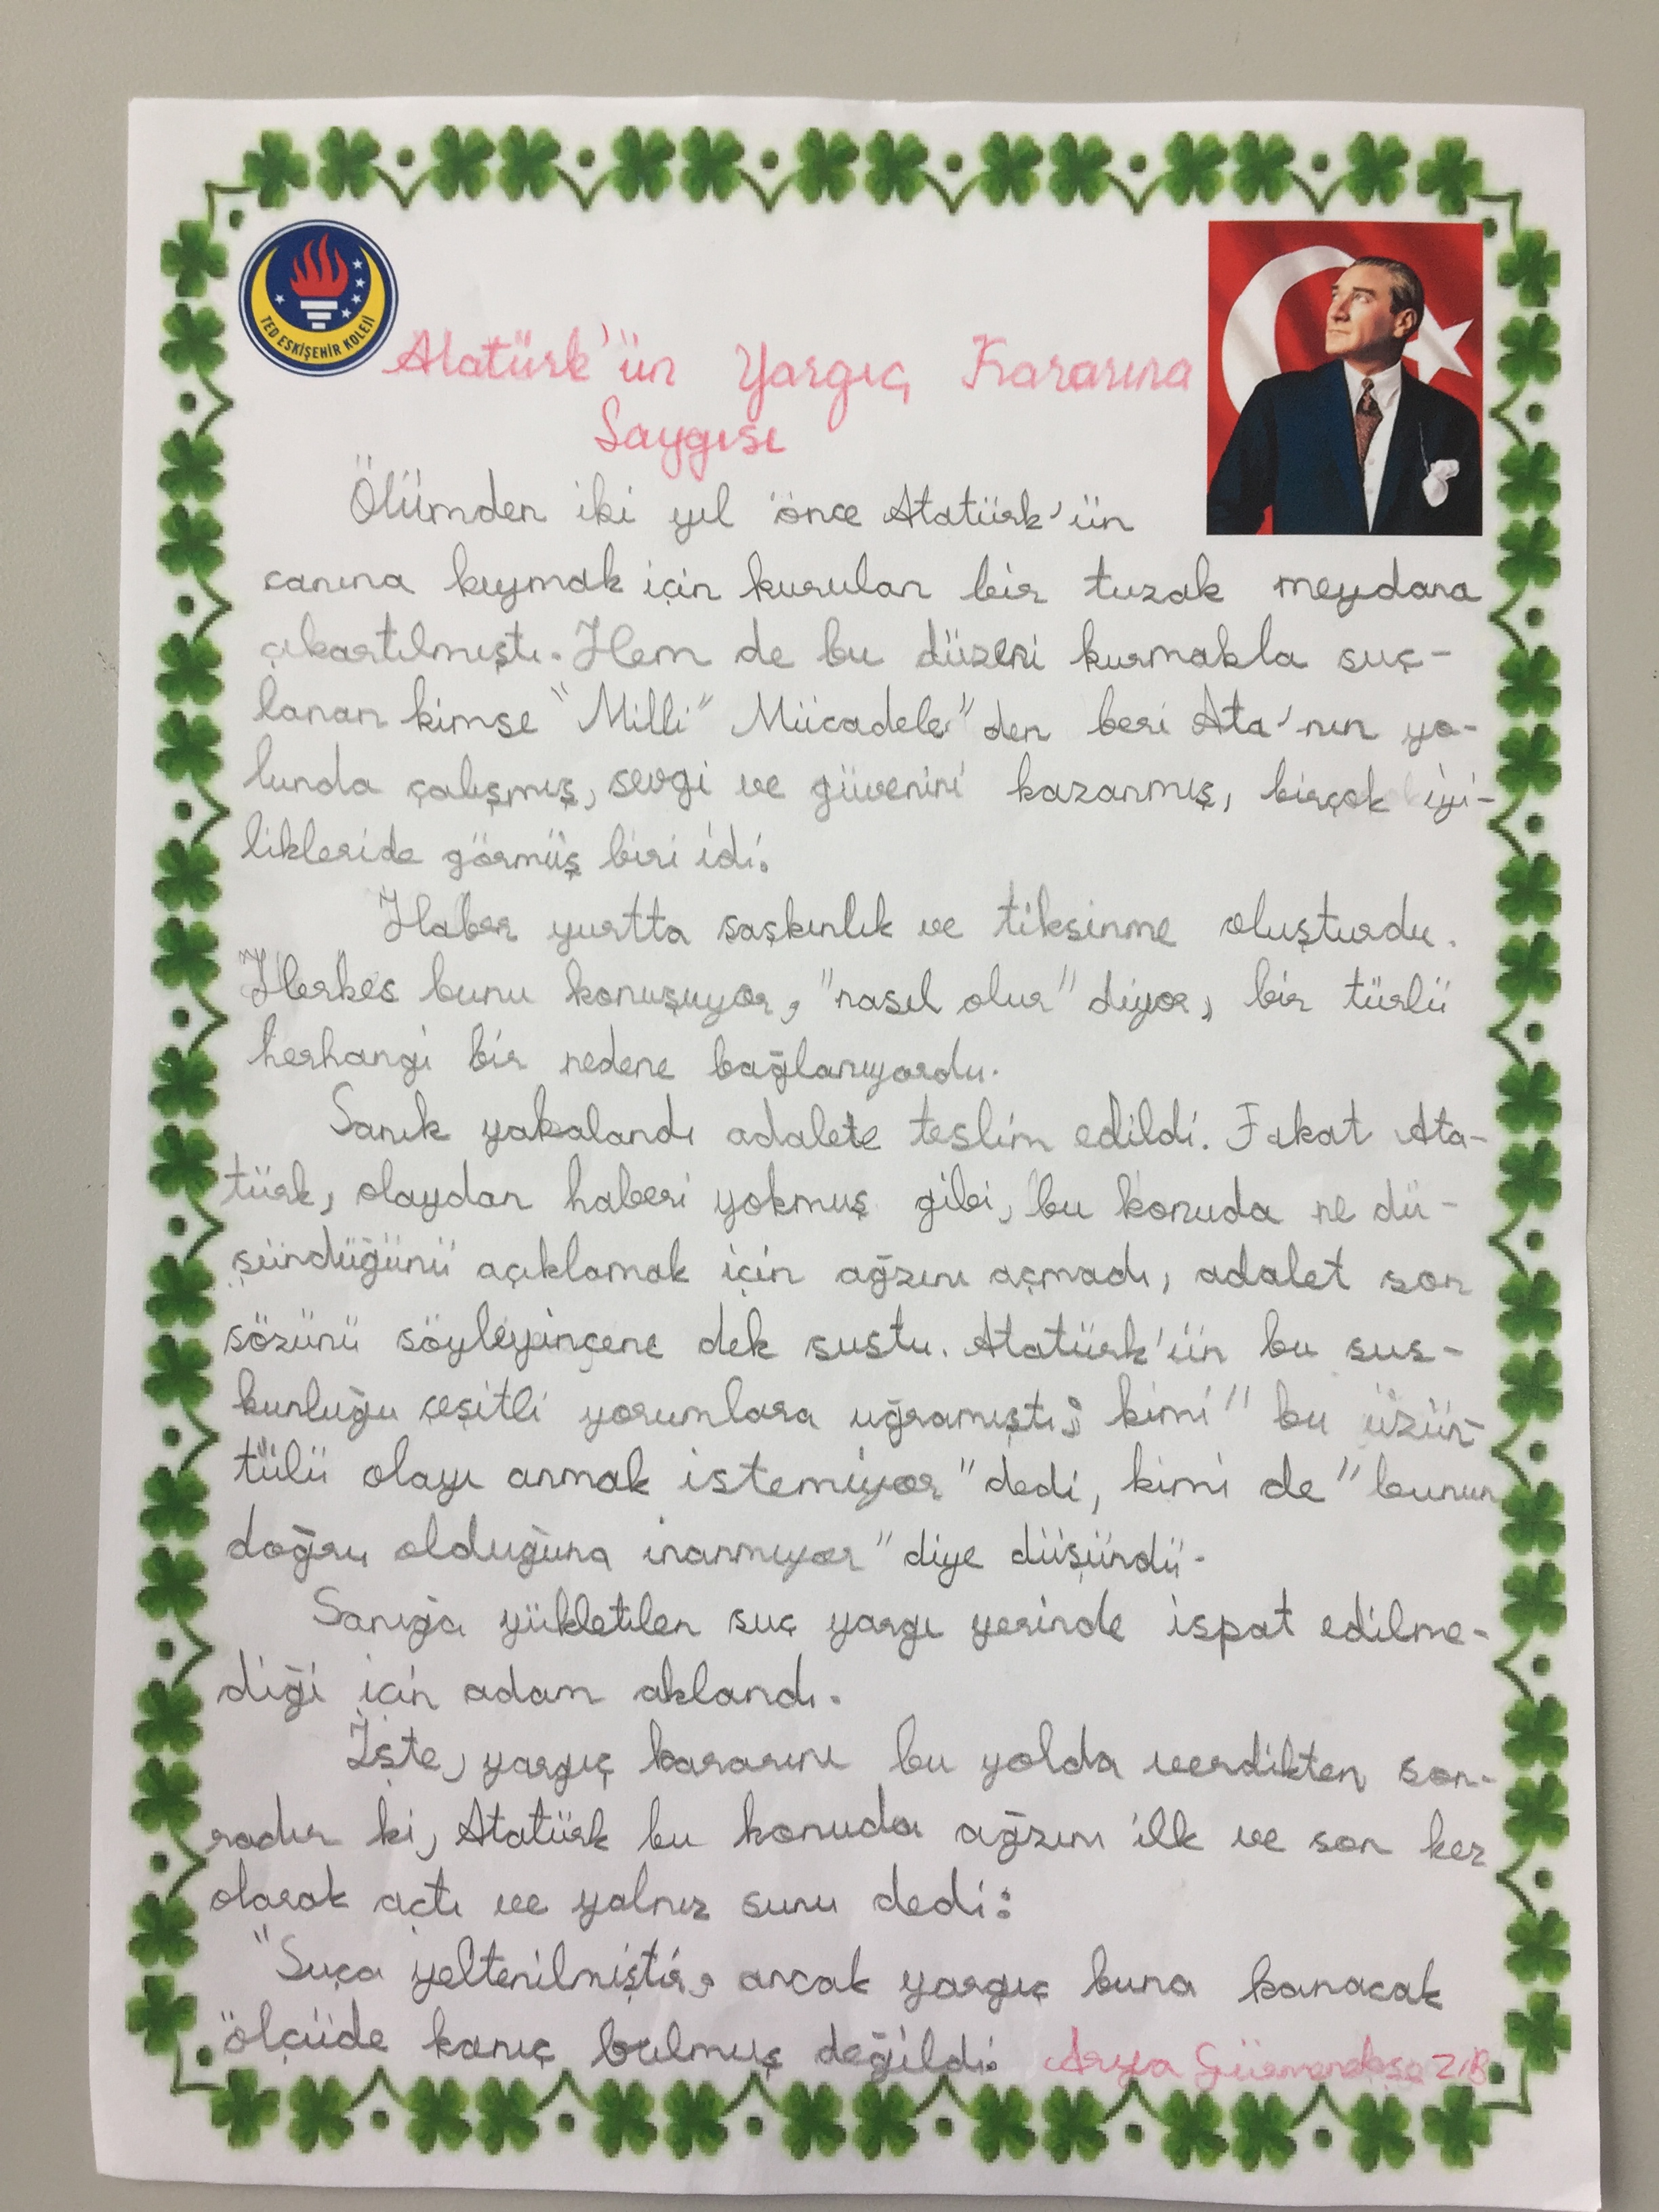 TED ESKİŞEHİR KOLEJİ
Atatürk'ün Yargıç Kararına
Saygısı
Ölümden iki yıl önce Atatürk'ün
canına kıymak için kurulan bir tuzak meydana
çıkartılmıştı. Hem de bu düzeni kurmakla suç-
lanan kimse "Milli" Mücadele"den beri Ata'nın yo-
lunda çalışmış, sevgi ve güvenini kazanmış, birçok iyi-
likleride görmüş biri idi.
Haber yurtta şaşkınlık ve tiksinme oluşturdu.
Herkes bunu konuşuyor, "nasıl olur" diyor, bir türlü
herhangi bir nedene bağlanıyordu.
Sanık yakalandı adalete teslim edildi. Fakat Ata-
türk, olaydan haberi yokmuş gibi, bu konuda ne dü-
şündüğünü açıklamak için ağzını açmadı, adalet son
sözünü söyleyinçene dek sustu. Atatürk'ün bu sus-
kunluğu çeşitli yorumlara uğramıştı; kimi "bu üzün-
tülü olayı anmak istemiyor" dedi, kimi de "bunun
doğru olduğuna inanmıyor" diye düşündü.
Sanığa yükletilen suç yargı yerinde ispat edilme-
diği için adam aklandı.
İşte, yargıç kararını bu yolda verdikten son-
radır ki, Atatürk bu konuda ağzını ilk ve son kez
olarak açtı ve yalnız sunu dedi:
"Suça yeltenilmiştir, ancak yargıç buna kanacak
ölçüde kanıç bulmuş değildi.
Arya